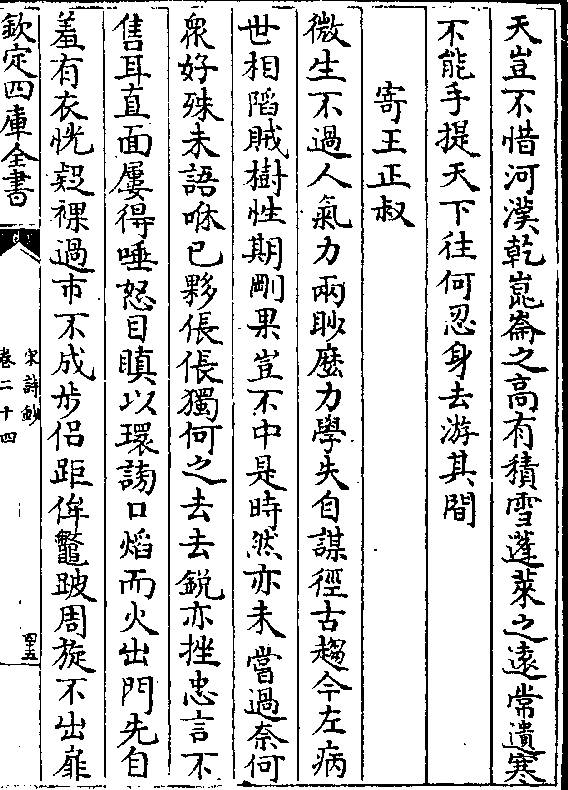 天豈不惜河漢乾崑崙之高有積雪蓬萊之遠常遺寒
不能手提天下往何忍身去游其間
寄王正叔
微生不過人氣力兩眇麽力學失自謀徑古趨今左病
世相䧟賊樹性期剛果豈不中是時然亦未嘗過奈何
衆好殊未語咻已夥倀倀獨何之去去鋭亦挫忠言不
售耳直面屢得唾怒目瞋以環謗口燄而火出門先自
羞有衣恍疑裸過市不成步侣距侔鼈跛周旋不出扉
欽定四庫全書
宋詩鈔
卷二十四
四五